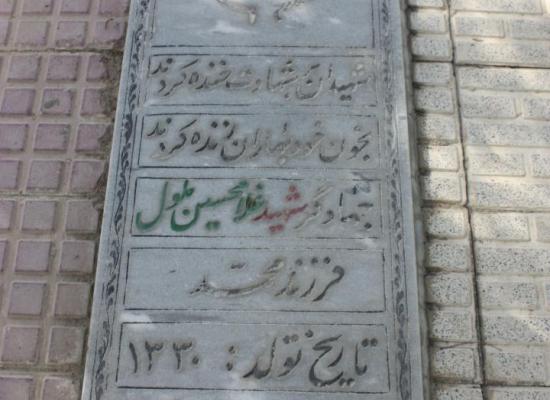 شهیدان بر شهادت خنده کردند
بخون خود بهاران زنده کردند
جهادگر شهید غلامحسین ملول
فرزند محمد
تاریخ تولد: ۱۳۳۰